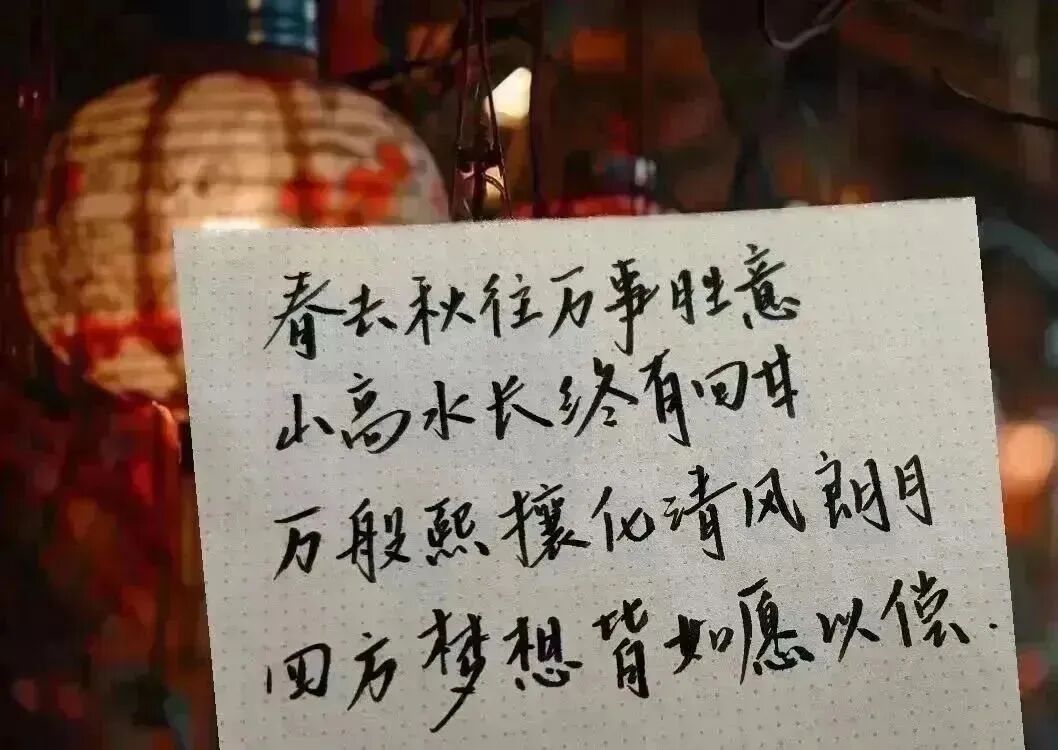 春去秋往万事胜意
山高水长终有回甘
万般熙攘化清风朗月
四方梦想皆如愿以偿.